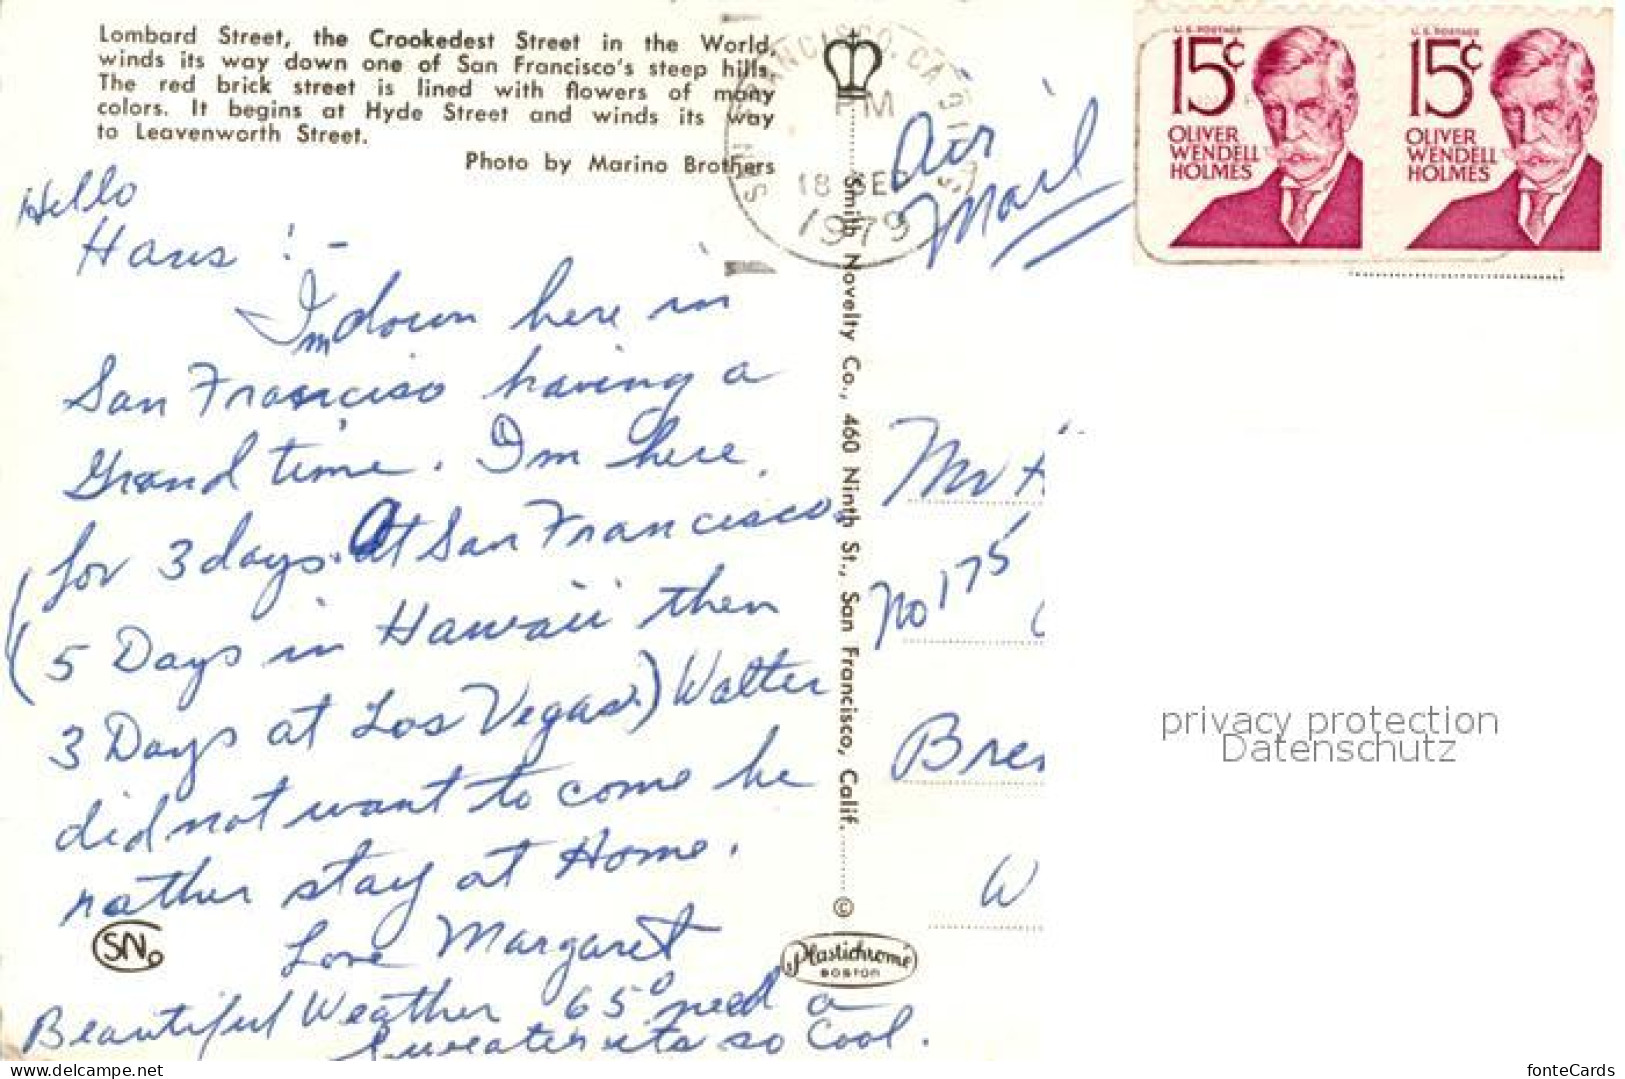 Lombard Street, the Crookedest Street in the World,
winds its way down one of San Francisco's steep hills.
The red brick street is lined with flowers of many
colors. It begins at Hyde Street and winds its way
to Leavenworth Street.
Photo by Marino Brothers
Hello
Hans ! -
Im down here in
San Francisco having a
Grand time. Im here
for 3 days. At San Francisco.
(5 Days in Hawaii then
3 Days at Los Vegas.) Walter
did not want to come he
rather stay at Home.
Love Margaret
Beautiful Weather 65° need a
sweater its so cool.
SN
Smith Novelty Co., 460 Ninth St., San Francisco, Calif.
©
Plastichrome
BOSTON
FRANCISCO, CA
PM
18 SEP
1979
Air
Mail
U.S. POSTAGE
15¢
OLIVER
WENDELL
HOLMES
U.S. POSTAGE
15¢
OLIVER
WENDELL
HOLMES
Mr H
No 175
Bre
W
privacy protection
Datenschutz
hello@my-next-shop.com
fonteCards